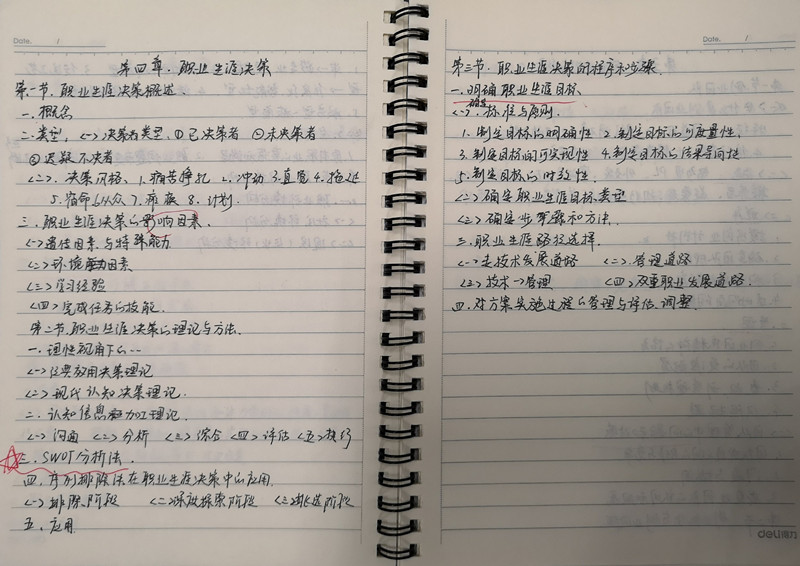 Date. /
第四章. 职业生涯决策
第一节. 职业生涯决策概述
一. 概念
二. 类型, <一> 决策者类型, ① 已决策者 ② 未决策者
③ 迟疑不决者
<二>. 决策风格、1. 痛苦挣扎 2. 冲动 3. 直觉 4. 拖延
5. 宿命 6. 从众 7. 瘫痪 8. 计划.
三. 职业生涯决策的影响因素.
<一> 遗传因素与特殊能力
<二> 环境因素
<三> 学习经验
<四> 完成任务的技能.
第二节. 职业生涯决策的理论与方法.
一. 理性视角下的…
<一> 经典效用决策理论
<二> 现代认知决策理论.
二. 认知信息加工理论.
<一> 沟通 <二> 分析 <三> 综合 <四> 评估 <五> 执行
三. SWOT分析法.
四. 序列排除法在职业生涯决策中的应用.
<一> 排除阶段 <二> 深度探索阶段 <三> 挑选阶段
五. 应用
Date. /
第三节. 职业生涯决策的程序和步骤.
一. 明确职业生涯目标
<一>. 标准与原则.
1. 制定目标的明确性 2. 制定目标的可度量性.
3. 制定目标的可实现性 4. 制定目标的结果导向性
5. 制定目标的时效性.
<二> 确定职业生涯目标类型
<三> 确定步骤和方法.
三. 职业生涯路径选择.
<一> 走技术发展道路 <二>. 管理道路
<三> 技术→管理 <四> 双重职业发展道路.
四. 对方案实施过程的管理与评估. 调整.
deli得力